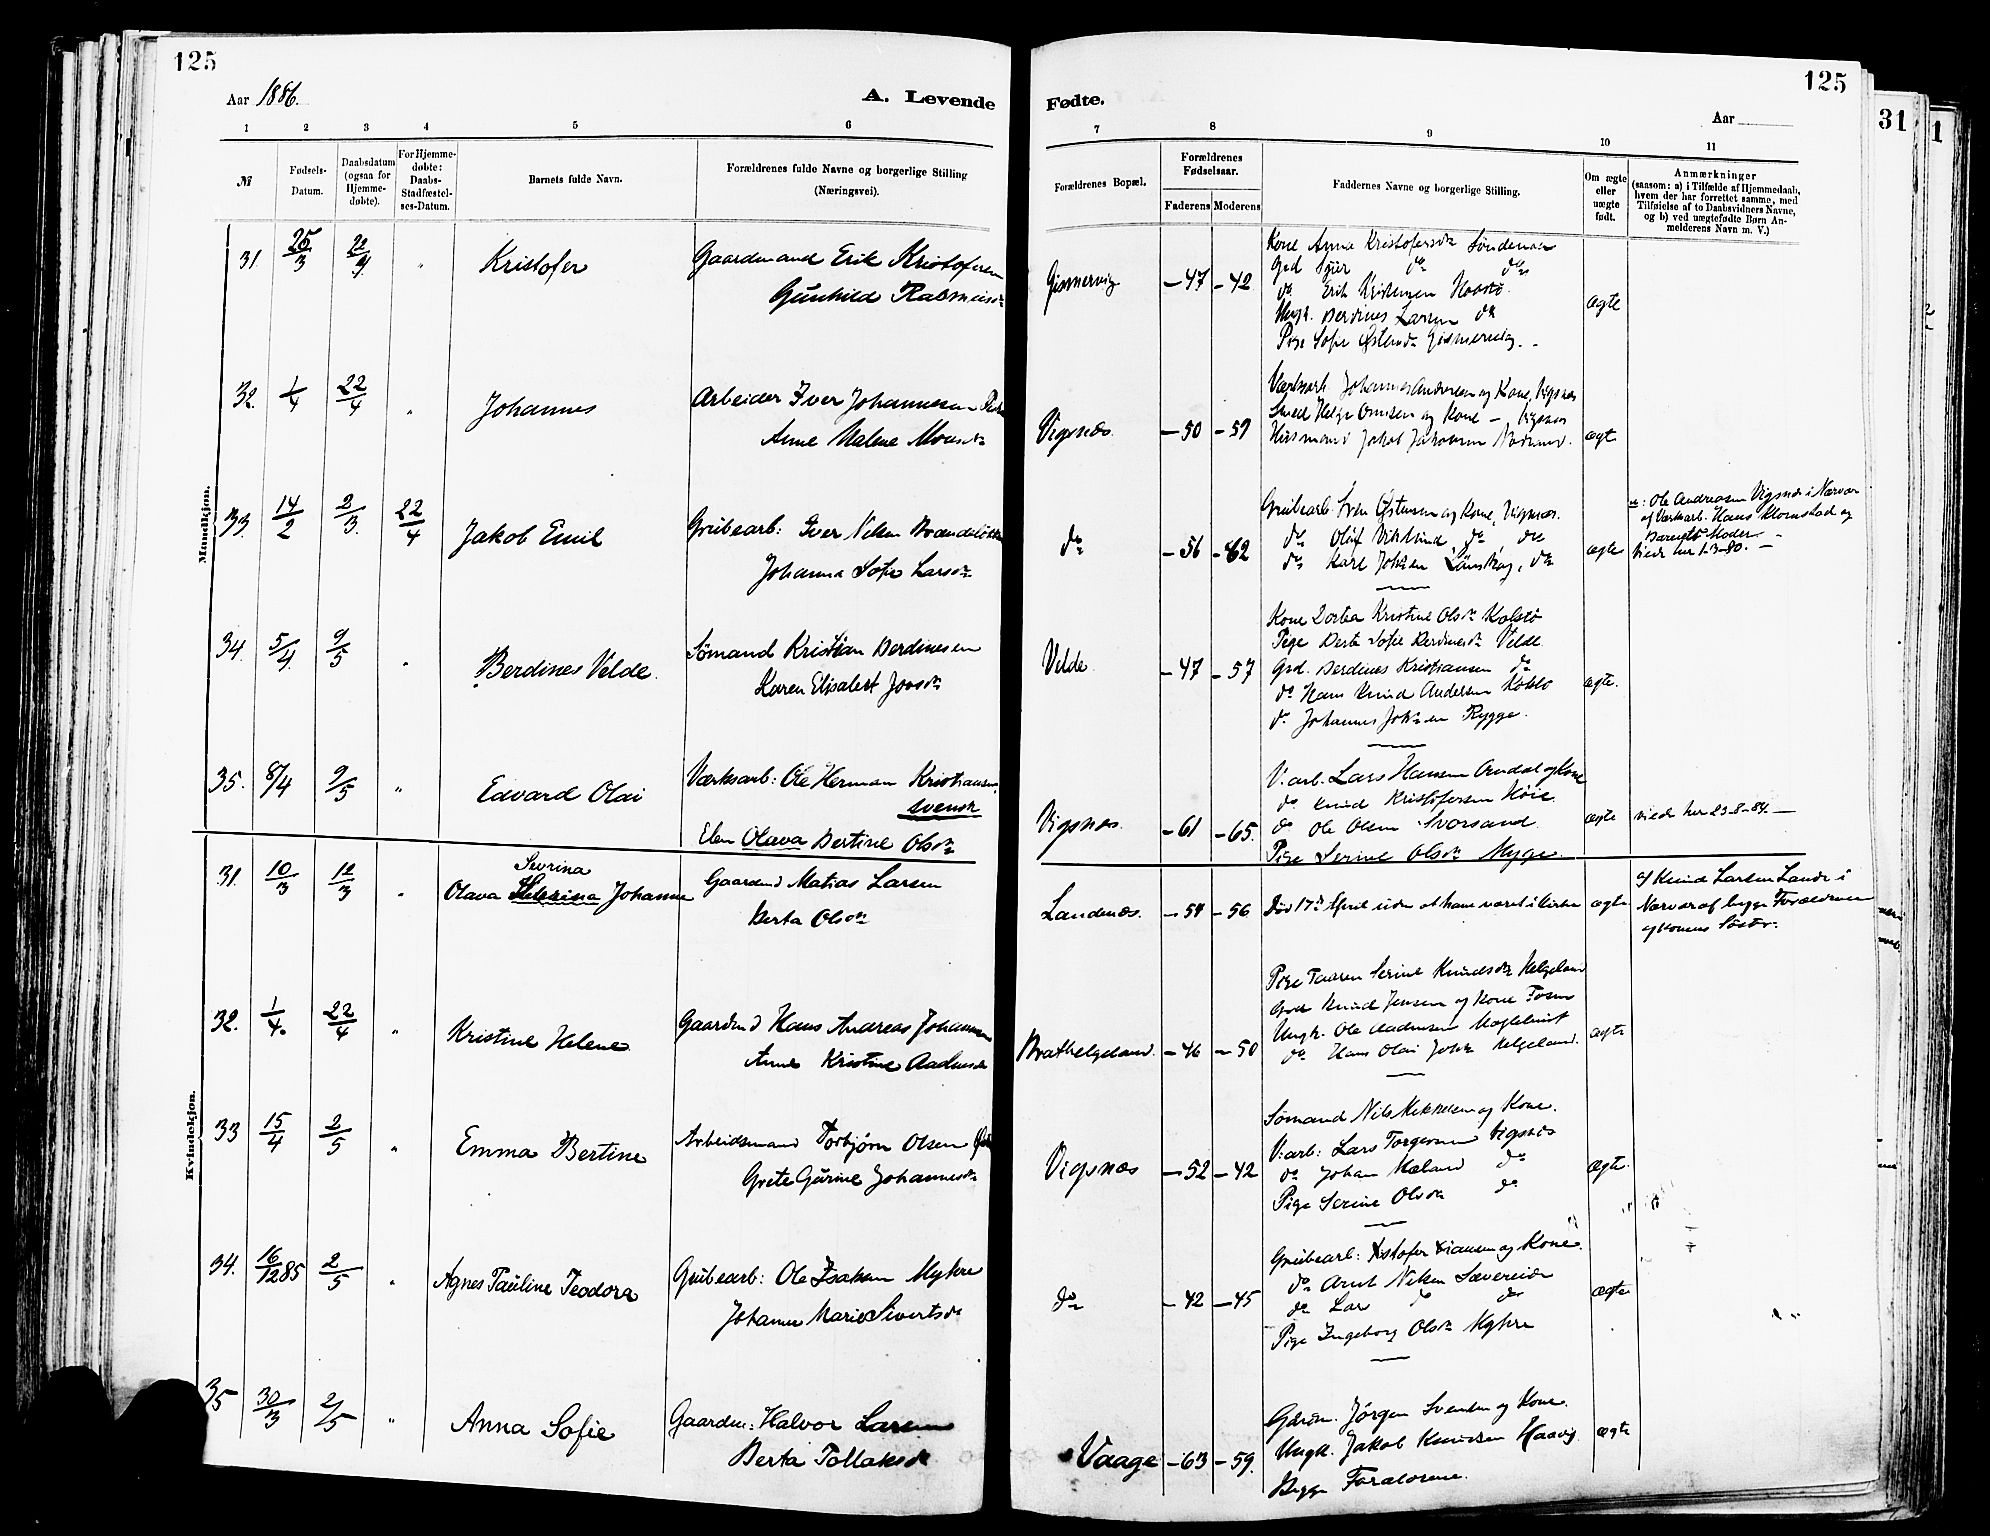 125
Aar 1886.
A. Levende
1 2 3 4 5 6
№
Fødsels-Datum.
Daabsdatum (ogsaa for Hjemmedøbte).
For Hjemmedøbte: Daabs-Stadfæstelses-Datum.
Barnets fulde Navn.
Forældrenes fulde Navne og borgerlige Stilling (Næringsvei).
Mandkjøn.
31. 25/3 22/4 " Kristofer Gaardmand Erik Kristofersen
Gunhild Rasmusdr
32. 1/4 22/4 " Johannes Arbeider Iver Johannesen
Anne Malene Monsdr
33. 14/2 2/3. 22/4 Jakob Emil Grubearb: Iver Nilsen
Johanna Sofie Larsdr
34. 5/4. 9/5 " Berdines Velde. Sømand Kristian Berdinesen
Karen Elisabet Joosdr
35. 8/4 9/5 " Edvard Olai Værksarb: Ole Herman Kristiansen,
svensk
Elen Olava Bertine Olsdr
Kvindekjøn.
31. 10/3 12/3 " Sevrina
Olava Johanne Gaardmd Matias Larsen
Berta Olsdr
32. 1/4. 22/4 " Kristine Helene Gaardmd Hans Andreas Johannesen
Anne Kristine Aadnesdr
33 15/4 2/5 " Emma Bertine Arbeidsmand Torbjørn Olsen
Grete Gurine Johannesdr
34. 16/12 85 2/5 " Agnes Pauline Teodora Grubearb: Ole Isaksen Myhre
Johanne Marie Sivertsdr
35 30/3 2/5 " Anna Sofie Gaardm: Halvor Larsen
Berta Tollaksdr
125
Fødte.
Aar
7 8 9 10 11
Forældrenes Bopæl.
Forældrenes Fødselsaar.
Faderens Moderens
Faddernes Navne og borgerlige Stilling.
Om ægte eller uægte født.
Anmærkninger
(saasom: a) i Tilfælde af Hjemmedaab, hvem der har forrettet samme, med Tilføielse af to Daabsvidners Navne, og b) ved uægtefødte Børn Anmelderens Navn m. V.)
Kone Anna Kristofersdr Søndenaa
Gismervig –47 –42 ægte
do Erik Kristensen
Ungk. Berdines Larsen do
Pige Sofie Østensdr Gismervig.
Værksarb. Johannes Andersen og Kone, Vigsnæs
Smed Helge Omsen og Kone – Vigsnæs
Vigsnæs. –50 –57 Husmand Jakob Jakobsen ægte
Grubearb. Sven Østensen og Kone, Vigsnæs.
do Oluf do do
do –56 –62 do Karl Johsen do ægte
Ole Andreasen Vigsnæs i Nærvær
af Værksarb. Hans Klomstad og
Barnets Moder.
Viede her 1-3-80. –
Kone Dortea Kristine Olsdr Kolstø
Pige Berte Sofie Berdinesdr Velde.
Velde. –47 –57 Grd. Berdines Kristiansen do ægte.
do Hans Knud Andersen Kolstø
do Johannes Johsen Rygge.
V.arb. Lars Hansen Arndal og Kone
do Knud Kristofersen Høie.
Vigsnæs. –61 –65. do Ole Olsen Svorsand. ægte viede her 23-8-84. –
Pige Serine Olsdr Myge.
Landenæs. –54 –56 Død 17de April uden at have været i Kirken ægte
af Knud Larsen Lande i
Nærvær af begge Forældrene
og Konens Søster.
Pige Taaren Serine Knudsdr Helgeland
Grd Knud Jensen og Kone Fosen
Ungk. Ole Aadnesen
Brathelgeland. –46 –50 do Hans Olai Johs. Helgeland. ægte
Sømand Nils Mikkelsen og Kone.
V.arb: Lars Torgersen Vigsnæs
Vigsnæs –52 –42 do Johan Mæland do ægte.
Pige Serine Olsdr do
Grubearb: og Kone.
do Arnt Nilsen Sævereide
do –42 –45 do Lars do do ægte
Pige Ingeborg Olsdr Myhre
Gaardm. Jørgen Svendsen og Kone.
Vaage –63 –59. Ungk. Jakob Knudsen Haavig. ægte
Begge Forældrene.
31
1